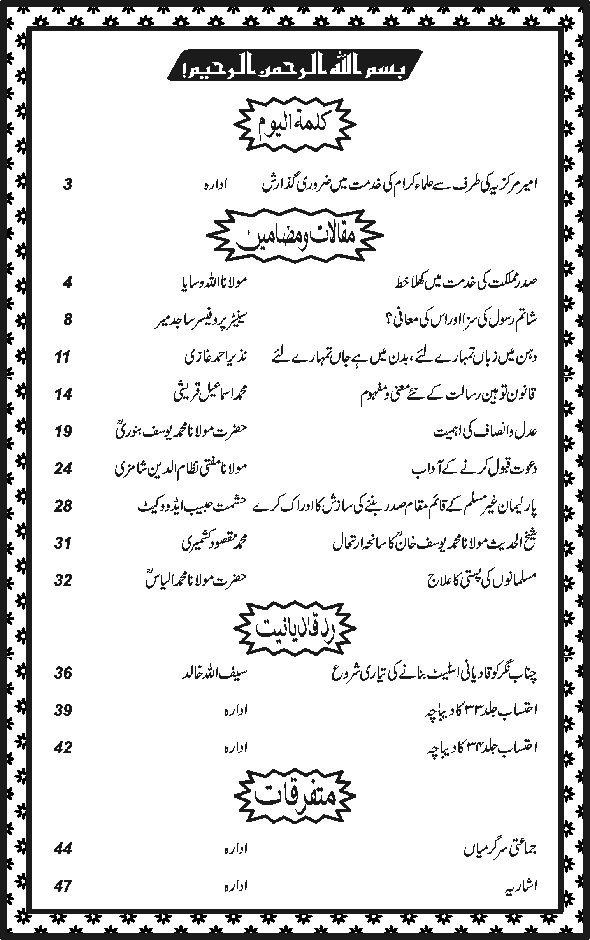 بسم الله الرحمن الرحیم!
کلمۃ الیوم
امیر مرکزیہ کی طرف سے علماء کرام کی خدمت میں ضروری گذارش ادارہ 3
مقالات و مضامین
صدر مملکت کی خدمت میں کھلا خط مولانا اللہ وسایا 4
شاتم رسول کی سزا اور اس کی معافی؟ سینیٹر پروفیسر ساجد میر 8
دہن میں زباں تمہارے لئے، بدن میں ہے جاں تمہارے لئے نذیر احمد غازی 11
قانون توہین رسالت کے نئے معنی و مفہوم محمد اسماعیل قریشی 14
عدل و انصاف کی اہمیت حضرت مولانا محمد یوسف بنوریؒ 19
دعوت قبول کرنے کے آداب مولانا مفتی نظام الدین شامزی 24
پارلیمان غیر مسلم کے قائم مقام صدر بننے کی سازش کا ادراک کرے حشمت حبیب ایڈووکیٹ 28
شیخ الحدیث مولانا محمد یوسف خانؒ کا سانحہ ارتحال محمد مقصود کشمیری 31
مسلمانوں کی پستی کا علاج حضرت مولانا محمد الیاسؒ 32
رد قادیانیت
چناب نگر کو قادیانی اسٹیٹ بنانے کی تیاری شروع سیف اللہ خالد 36
احتساب جلد ۳۳ کا دیباچہ ادارہ 39
احتساب جلد ۳۴ کا دیباچہ ادارہ 42
متفرقات
جماعتی سرگرمیاں ادارہ 44
اشاریہ ادارہ 47